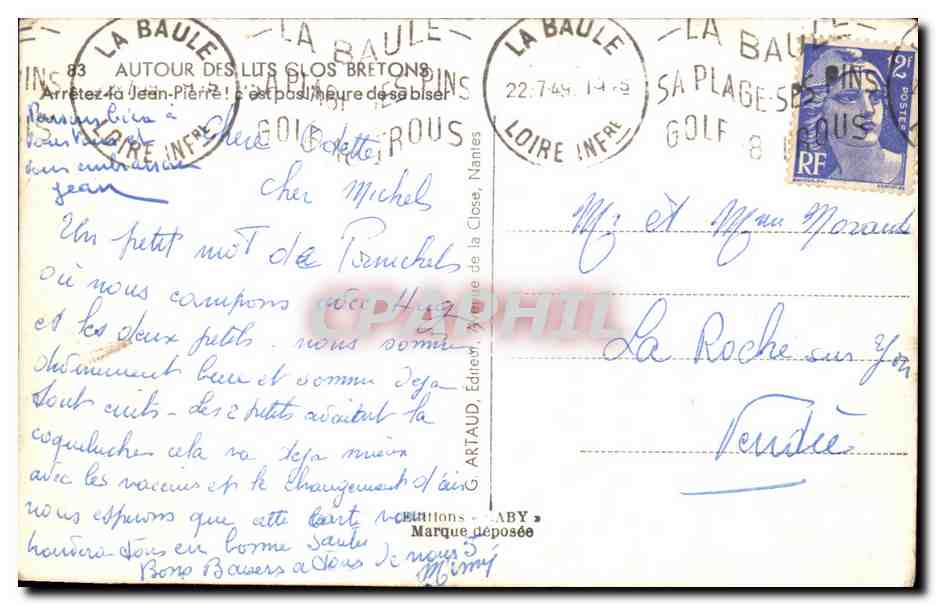 LA BAULE
LOIRE INFRE
LA BAULE
SA PLAGE SES PINS
GOLF
LA BAULE
22-7-49
LOIRE INFRE
LA BAULE
SA PLAGE-SES PINS
GOLF 8 TROUS
12F
POSTES
RF
83 AUTOUR DES LITS CLOS BRETONS
Arrêtez-la Jean-Pierre ! c'est pas l'heure de sa biser
Jean
Chère Odette
Cher Michel
Un petit mot de Pornichet
où nous campons avec Hug
et les deux petits. nous sommes
divinement bien et somme deja
tout cuits - Les 2 petits avaient la
coqueluche cela va deja mieux
avec les vaccins et le changement d'air
nous esperons que cette carte vous
trouvera tous en bonne santé
Bons Baisers a tous de nous 5
Mimi
G. ARTAUD, Editeur, Avenue de la Close, Nantes
Editions « GABY »
Marque déposée
Mr et Mme Morand
La Roche sur Yon
Vendée
CPARPHIL